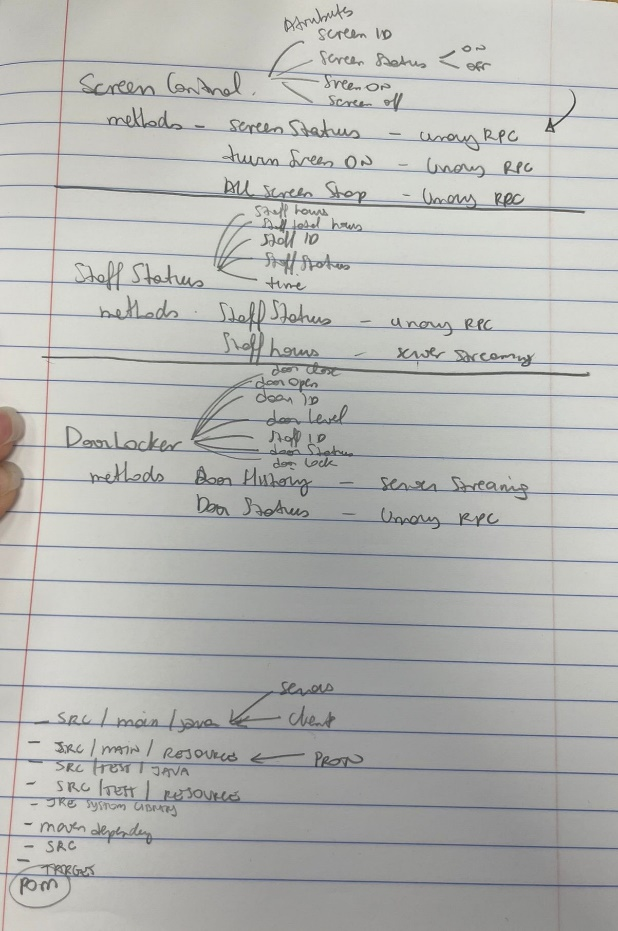 Attributes
screen ID
screen status < ON
OFF
Sreen ON
screen off
Screen Control.
methods - screen Status - unary RPC
turn Sreen ON - Unary RPC
All screen Stop - Unary RPC
Staff hours
Staff total hours
Staff ID
Staff Status
time
Staff Status
methods. Staff Status - unary RPC
Staff hours - server streaming
door close
door open
door ID
door Level
Staff ID
door Status
door Lock
DoorLocker
methods Door History - server streaming
Door Status - Unary RPC
servers
- SRC / main / java ← client
- SRC / MAIN / RESOURCES ← PROTO
- SRC / TEST / JAVA
- SRC / TEST / RESOURCES
- JRE SYSTEM LIBRARY
- maven dependency
- SRC
- TARGET
POM